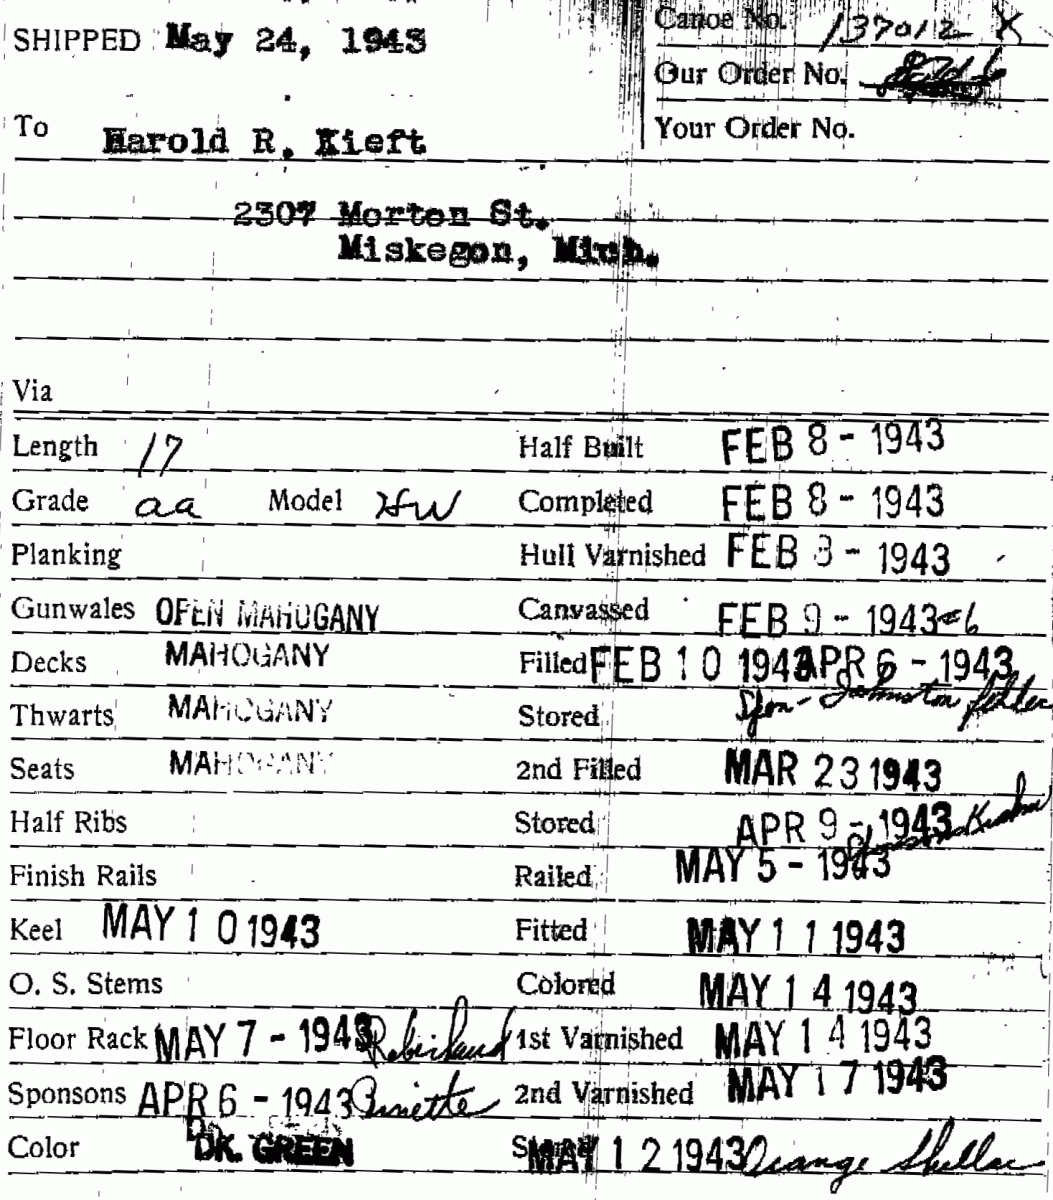 SHIPPED May 24, 1943
Canoe No. 137012 X
Our Order No.
To Harold R. Kieft
Your Order No.
2307 Morton St.
Miskegon, Mich.
Via
Length 17 Half Built FEB 8 - 1943
Grade aa Model HW Completed FEB 8 - 1943
Planking Hull Varnished FEB 8 - 1943
Gunwales OPEN MAHOGANY Canvassed FEB 9 - 1943
Decks MAHOGANY Filled FEB 10 1943 APR 6 - 1943
Thwarts MAHOGANY Stored Johnston filler
Seats MAHOGANY 2nd Filled MAR 23 1943
Half Ribs Stored APR 9 - 1943
Finish Rails Railed MAY 5 - 1943
Keel MAY 10 1943 Fitted MAY 11 1943
O. S. Stems Colored MAY 14 1943
Floor Rack MAY 7 - 1943 Robichaud 1st Varnished MAY 14 1943
Sponsons APR 6 - 1943 Pinette 2nd Varnished MAY 17 1943
Color DK. GREEN MAY 12 1943 Orange Shellac